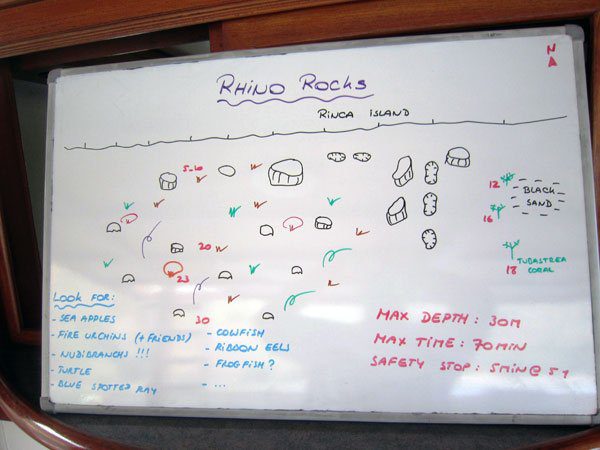 N
RHINO ROCKS
RINCA ISLAND
5-6
12
BLACK
SAND
16
20
TUBASTREA
CORAL
18
23
30
LOOK FOR:
- SEA APPLES
- FIRE URCHINS (+ FRIENDS)
- NUDIBRANCHS !!!
- TURTLE
- BLUE SPOTTED RAY
- COWFISH
- RIBBON EELS
- FROGFISH?
- ...
MAX DEPTH: 30M
MAX TIME: 70MIN
SAFETY STOP: 5MIN@